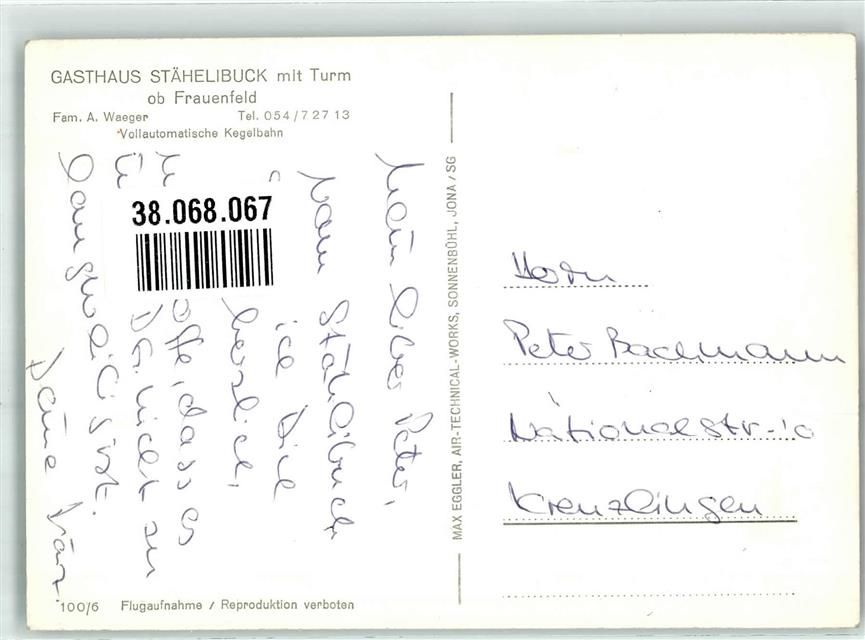 GASTHAUS STÄHELIBUCK mit Turm
ob Frauenfeld
Fam. A. Waeger Tel. 054/7 27 13
Vollautomatische Kegelbahn
Mein lieber Peter,
Vom Stählibuck
ich Dich
herzlich,
offe, dass es
Dir nicht zu
langweilig ist.
Deine
38.068.067
MAX EGGLER, AIR-TECHNICAL-WORKS, SONNENBÜHL, JONA/SG
Herrn
Peter Bachmann
Nationalstr. 10
Kreuzlingen
100/6 Flugaufnahme / Reproduktion verboten